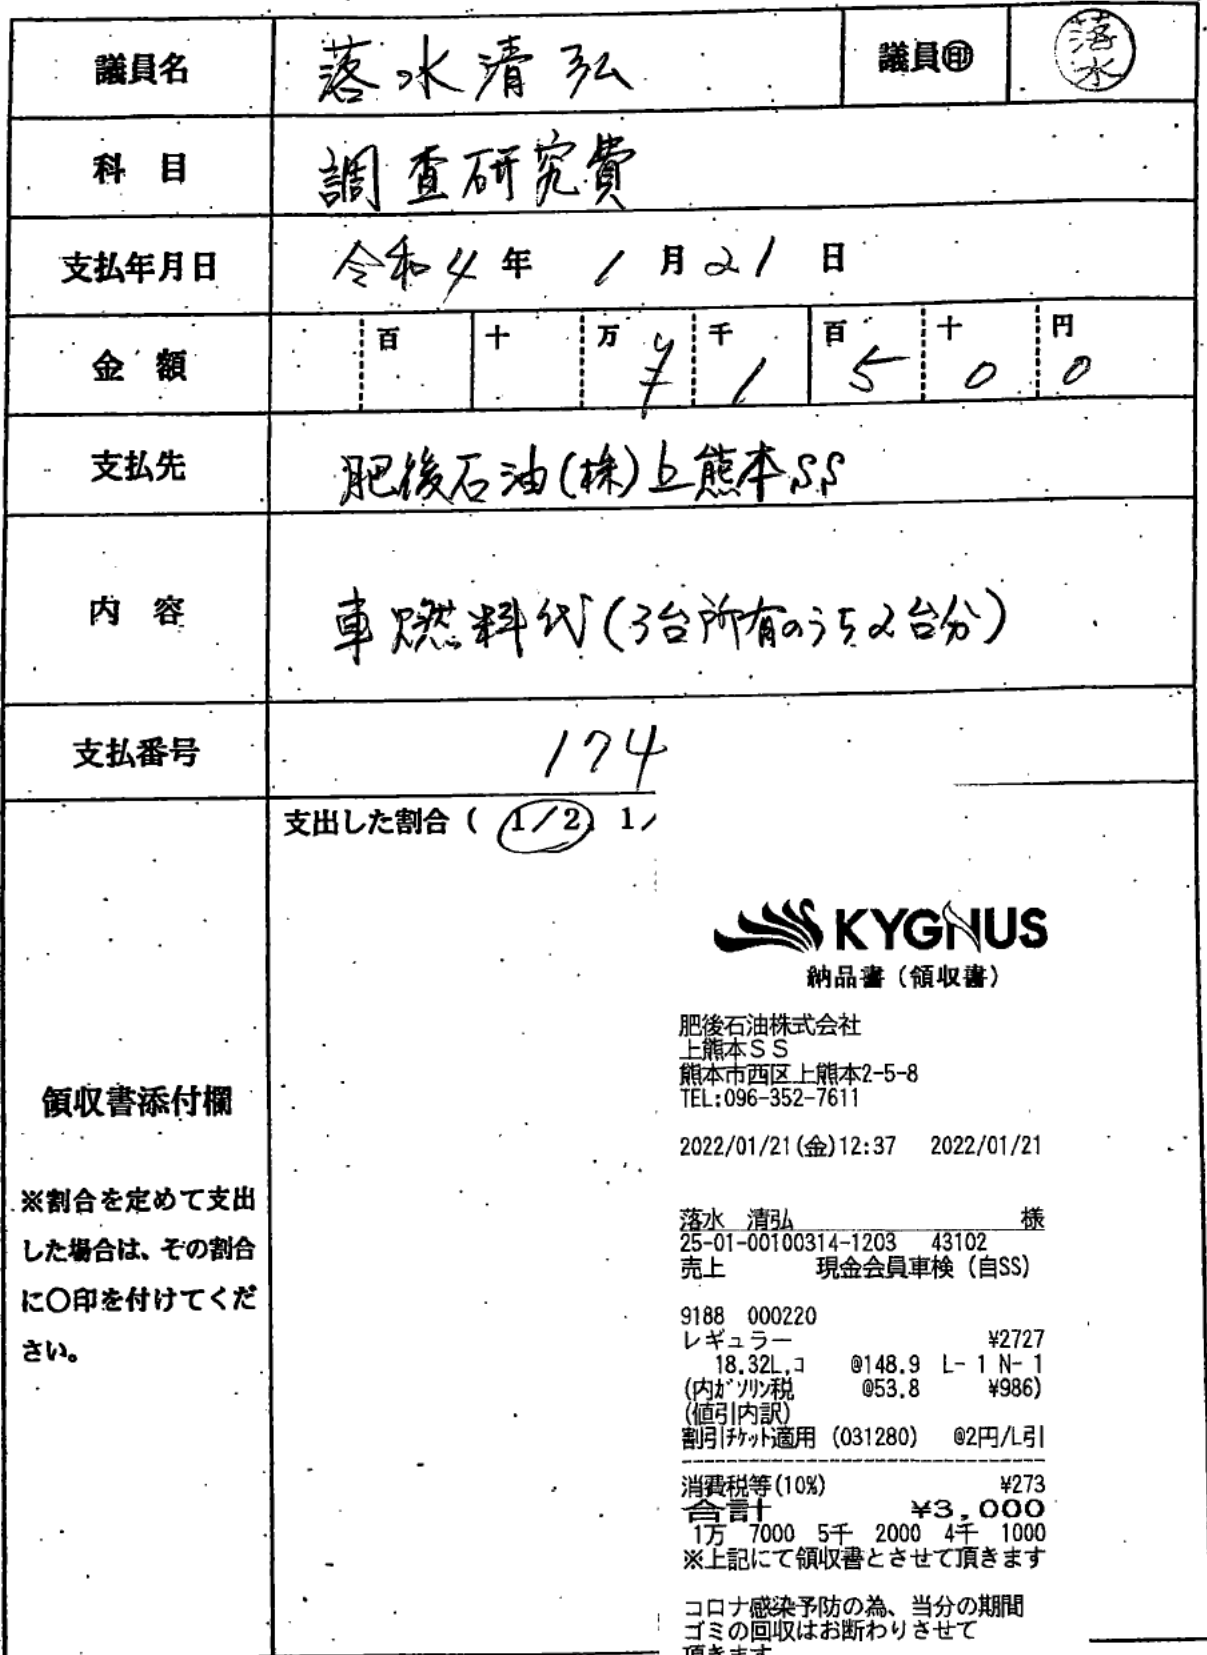 議員名 落水清弘 議員㊞ 落水
科 目 調査研究費
支払年月日 令和4年 1月21日
金 額 百 十 万 千 百 十 円
¥ 1 5 0 0
支払先 肥後石油(株)上熊本SS
内 容 車燃料代(3台所有のうち2台分)
支払番号 174
支出した割合( 1/2) 1/
領収書添付欄
※割合を定めて支出
した場合は、その割合
に〇印を付けてくだ
さい。
KYGNUS
納品書(領収書)
肥後石油株式会社
上熊本SS
熊本市西区上熊本2-5-8
TEL:096-352-7611
2022/01/21(金)12:37 2022/01/21
落水 清弘 様
25-01-00100314-1203 43102
売上 現金会員車検(自SS)
9188 000220
レギュラー ¥2727
18.32L,コ @148.9 L- 1 N- 1
(内ガソリン税 @53.8 ¥986)
(値引内訳)
割引チケット適用 (031280) @2円/L引
消費税等(10%) ¥273
合計 ¥3,000
1万 7000 5千 2000 4千 1000
※上記にて領収書とさせて頂きます
コロナ感染予防の為、当分の期間
ゴミの回収はお断わりさせて
頂きます